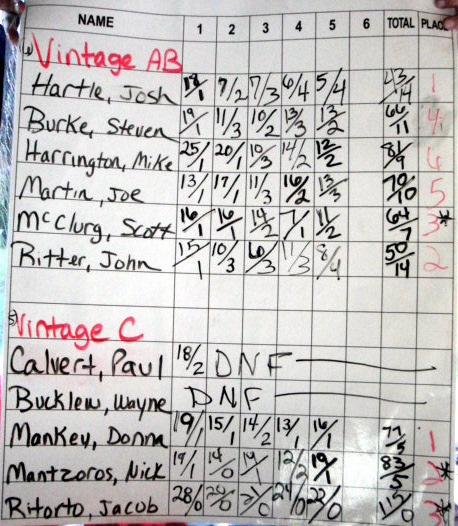 NAME 1 2 3 4 5 6 TOTAL PLACE
6) Vintage AB
Hartle, Josh 18/1 7/2 7/3 6/4 5/4 43/14 1
Burke, Steven 19/1 11/3 10/2 13/3 13/2 66/11 4
Harrington, Mike 25/1 20/1 10/3 14/2 12/2 81/9 6
Martin, Joe 13/1 17/1 11/3 16/2 13/3 70/10 5
McClurg, Scott 16/1 16/1 14/2 7/1 11/2 64/7 3*
Ritter, John 15/1 10/3 6/3 11/3 8/4 50/14 2
5) Vintage C
Calvert, Paul 18/2 DNF
Bucklew, Wayne DNF
Mankey, Donna 19/1 15/1 14/2 13/1 16/1 77/5 1
Mantzoros, Nick 19/1 14/0 12/2 19/1 83/5 2*
Ritorto, Jacob 28/0 24/0 22/0 115/0 3*